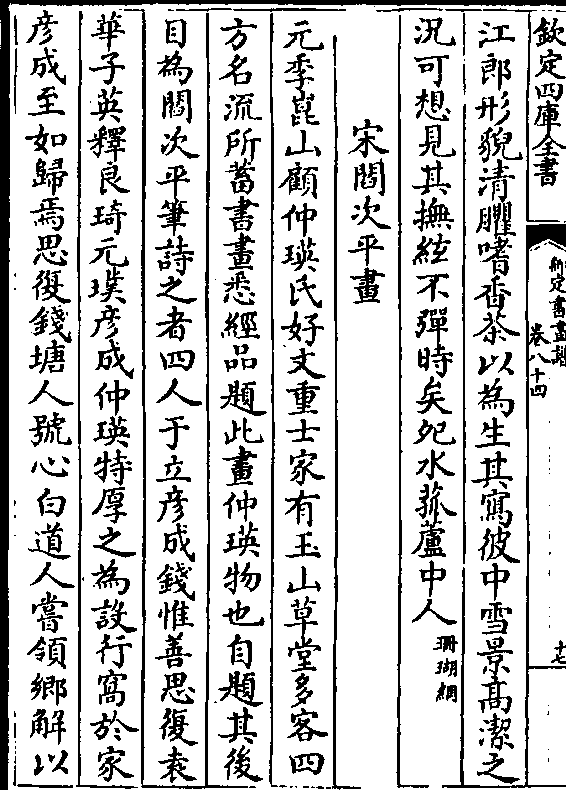 欽定四庫全書
御定書畫譜
卷八十四
十七
江郎形貌清臞嗜香茶以為生其寫彼中雪景高潔之
況可想見其撫絃不彈時矣夗水菰蘆中人珊瑚網
宋閻次平畫
元季崑山顧仲瑛氏好文重士家有玉山草堂多客四
方名流所蓄書畫悉經品題此畫仲瑛物也自題其後
目為閻次平筆詩之者四人于立彥成錢惟善思復袁
華子英釋良琦元璞彥成仲瑛特厚之為設行窩於家
彥成至如歸焉思復錢塘人號心白道人嘗領鄉解以